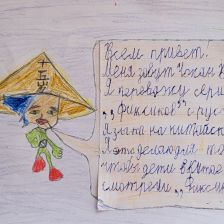 十五
Всем привет.
Меня зовут
Я перевожу сери
„Фиксиков" с рус
языка на китайск
Я это делаю
чтобы дети в Китае
смотрели „Фикси